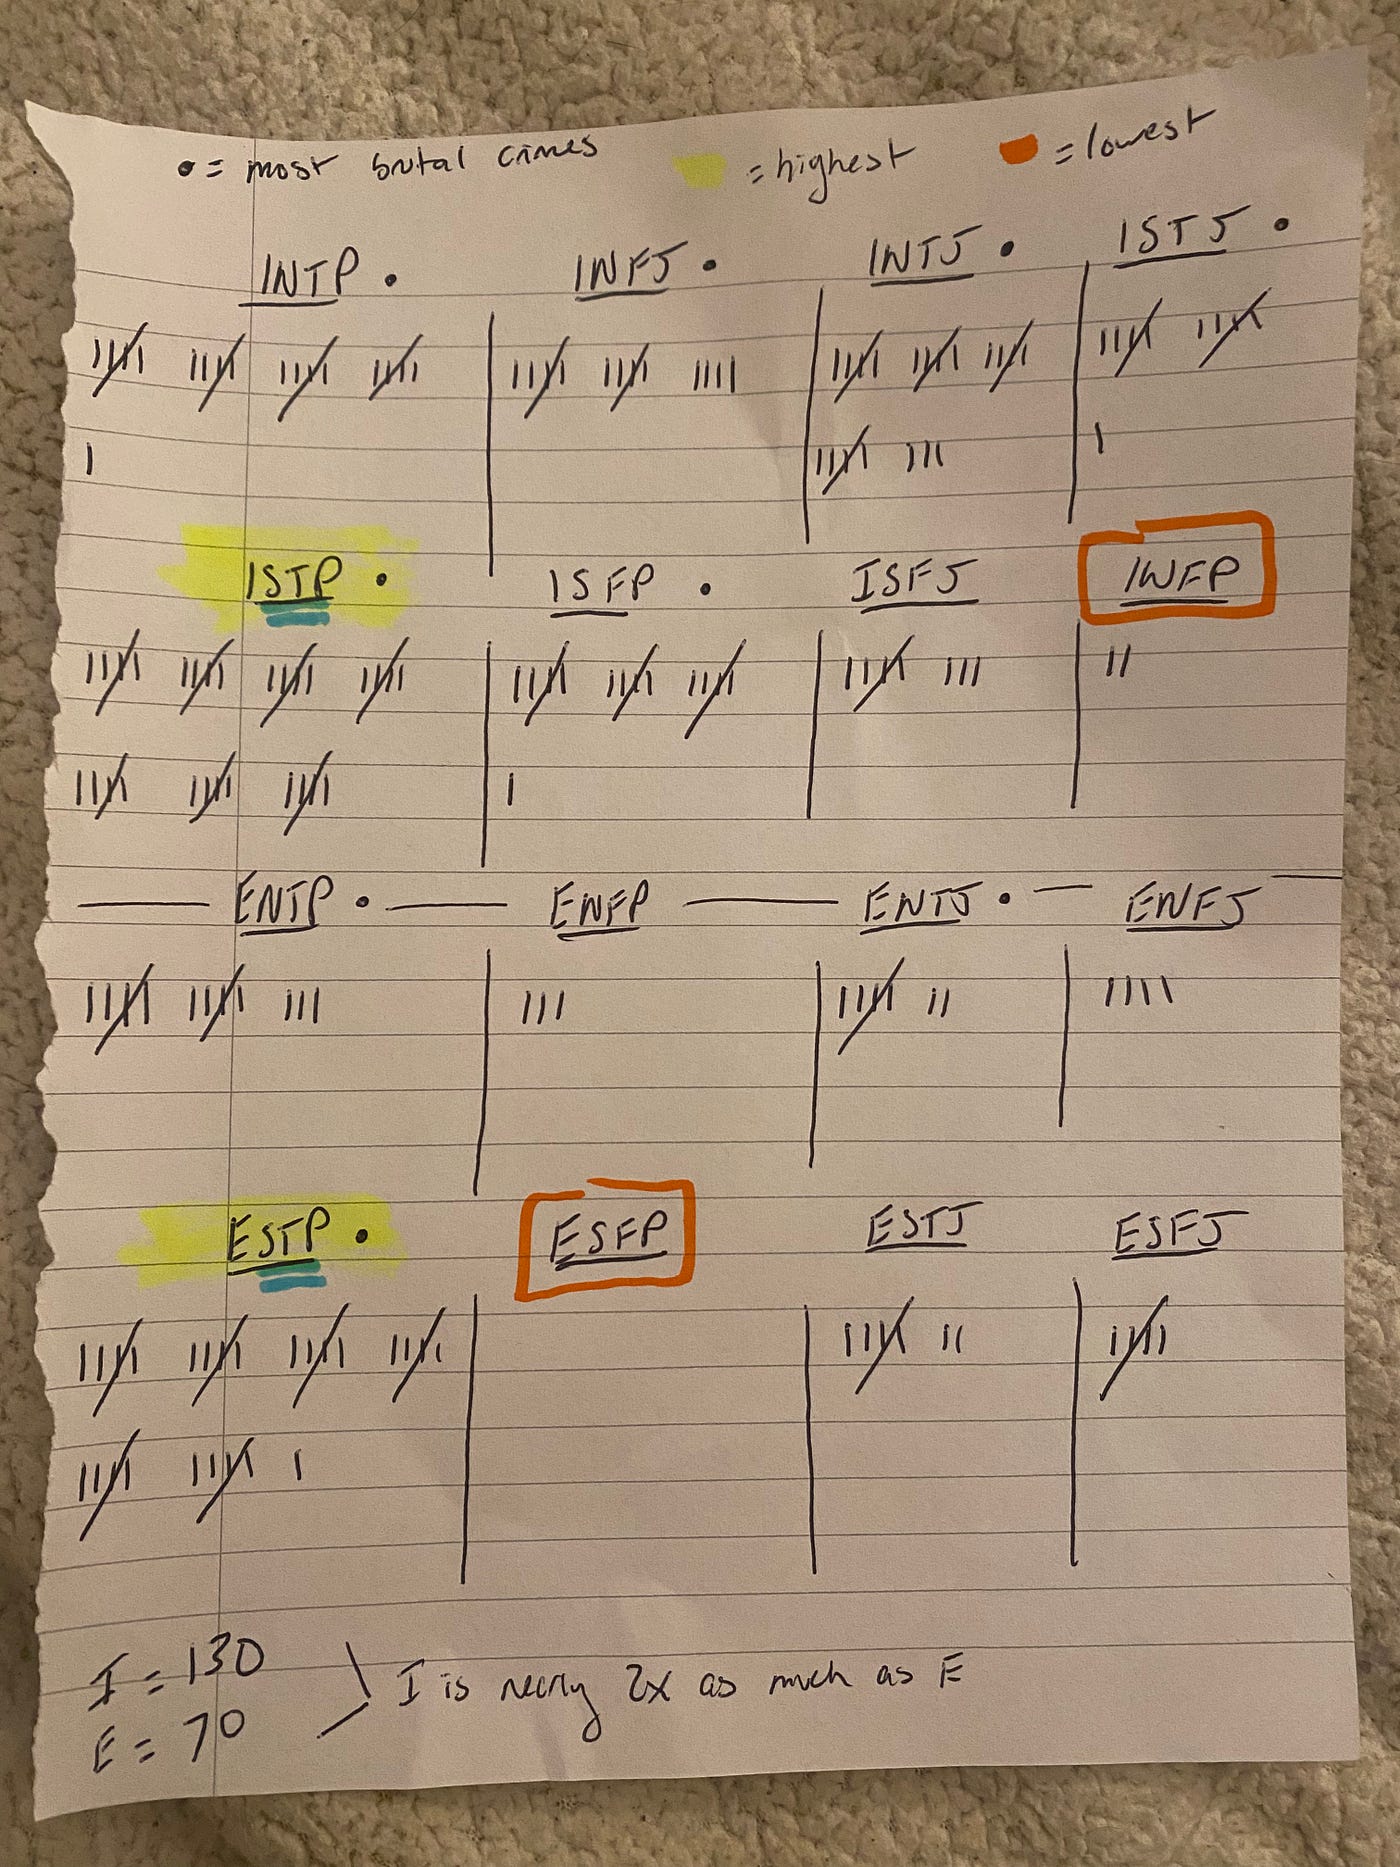 • = most brutal crimes = highest = lowest
INTP • INFJ • INTJ • ISTJ •
ISTP • ISFP • ISFJ INFP
ENTP • ENFP ENTJ • ENFJ
ESTP • ESFP ESTJ ESFJ
I = 130
E = 70
I is nearly 2x as much as E